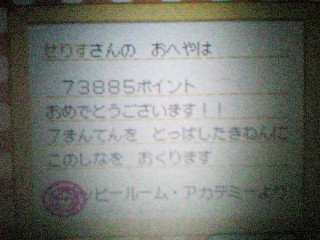 せりすさんの　おへやは
73885ポイント
おめでとうございます！！
7まんてんを　とっぱしたきねんに
このしなを　おくります
ッピールーム・アカデミーより